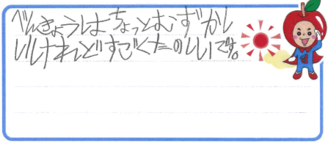 べんきょうはちょっとむずかし
いけれどすごくたのしいです。